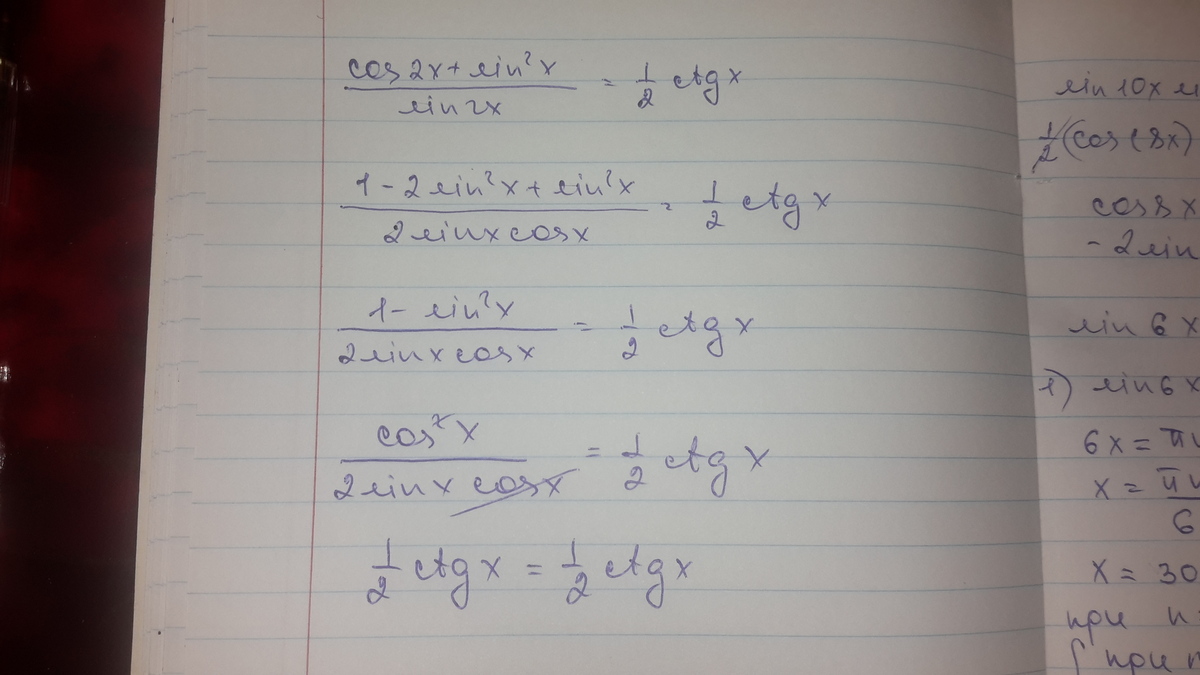 cos 2x + sin²x / sin 2x = 1/2 ctg x
1 - 2 sin²x + sin²x / 2 sin x cos x = 1/2 ctg x
1 - sin²x / 2 sin x cos x = 1/2 ctg x
cos²x / 2 sin x cos x = 1/2 ctg x
1/2 ctg x = 1/2 ctg x
sin 10x
1/2 (cos (8x)
cos 8x
- 2 sin
sin 6x
1) sin 6x
6x = π
x = π / 6
x = 30
при n
при